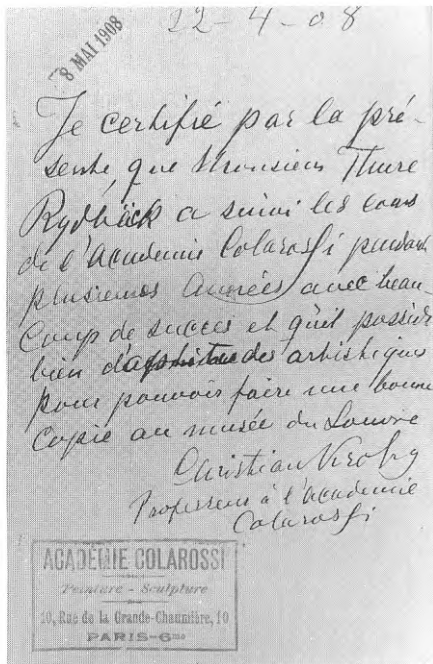 22-4-08
8 MAI 1908
Je certifié par la pré-
sente, que Monsieur Thure
Rydbäck a suivi les cours
de l'Academie Colarossi pendant
plusieures Années avec beau-
Coup de succes et qu'il possède
bien d'aptitudes artistiques
pour pouvoir faire une bonne
Copie au musée du Louvre
Christian Krohg
Professeur à l'academie
Colarossi
ACADÉMIE COLAROSSI
Peinture - Sculpture
10, Rue de la Grande-Chaumière, 10
PARIS-6me